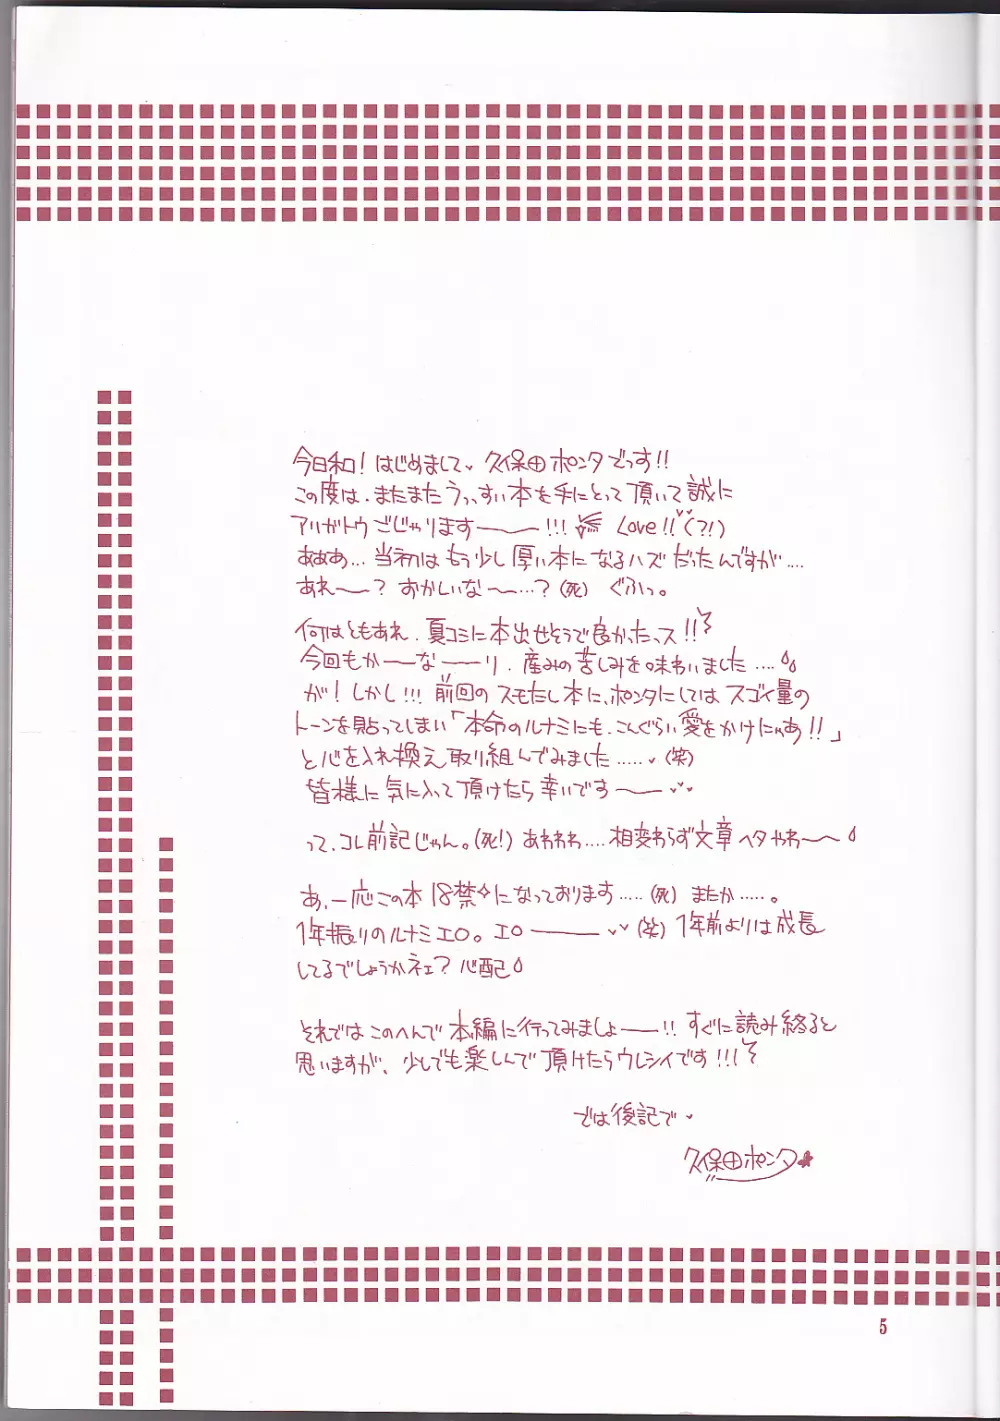 今日和！はじめまして♥久保田ポンタでっす!!
この度は、またまたうっすい本を手にとって頂いて誠に
アリガトウごじゃります——!!! Love!!♥(?!)
あああ…当初はもう少し厚い本になるハズだったんですが‥‥
あれ〜？おかしいな〜…？(死) ぐふっ。
何はともあれ、夏コミに本出せそうで良かったっス!!
今回もか——な——り、産みの苦しみを味わいました‥‥
が！しかし!!! 前回のスモたし本に、ポンタにしてはスゴイ量の
トーンを貼ってしまい「本命のルナミにも、こんぐらい愛をかけにゃあ!!」
と心を入れ換え取り組んでみました‥‥‥♥(笑)
皆様に気に入って頂けたら幸いです——♥♥
って、コレ前記じゃん。(死!) あわわわ‥‥相変わらず文章ヘタやわ〜
あ、一応この本18禁になっております‥‥‥(死) またか‥‥‥。
1年振りのルナミエロ。エロ———♥♥(笑) 1年前よりは成長
してるでしょうかネェ？心配
それではこのへんで本編に行ってみましょ——!! すぐに読み終ると
思いますが、少しでも楽しんで頂けたらウレシイです!!!
では後記で♥
久保田ポンタ
5